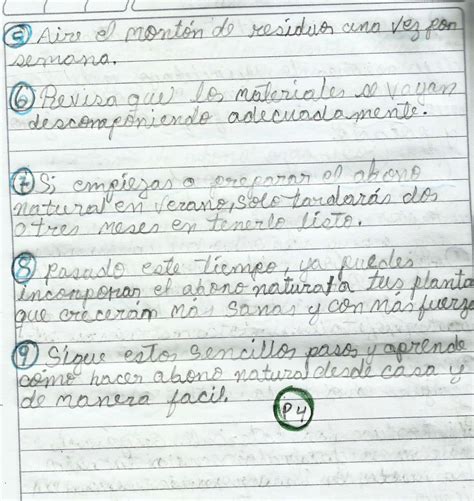 ⑤ Aire el montón de residuos una vez por
semana.
⑥ Revisa que los materiales se vayan
descomponiendo adecuadamente.
⑦ Si empiezas a preparar el abono
natural en verano, solo tardarás dos
o tres meses en tenerlo listo.
⑧ pasado este tiempo, ya puedes
incorporar el abono natural a tus planta
que crecerán más sanas y con más fuerza
⑨ Sigue estos sencillos pasos y aprende
cómo hacer abono natural desde casa y
de manera facil.
P4